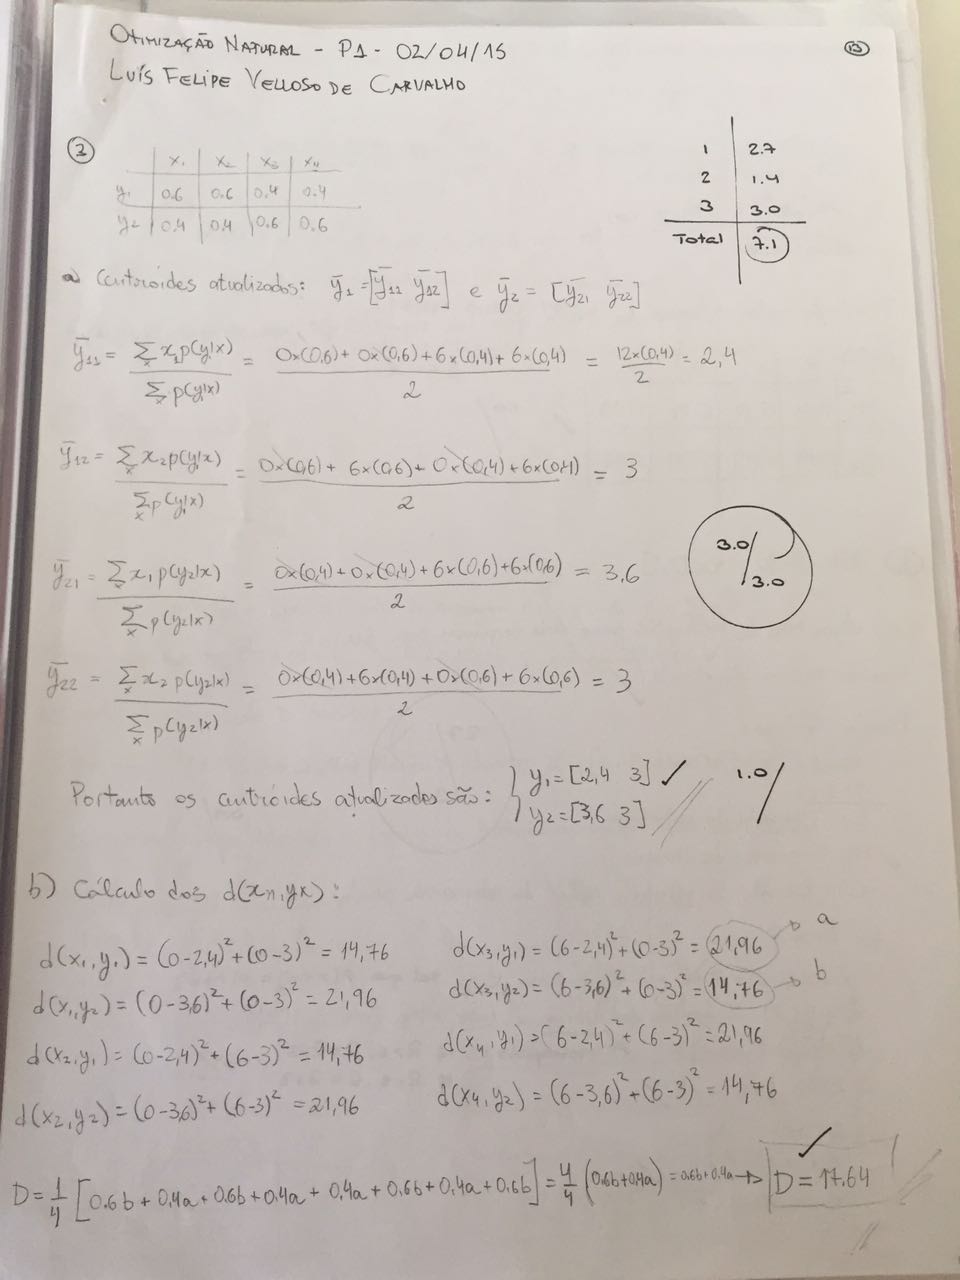 Otimização Natural - P1 - 02/04/15
Luís Felipe Velloso de Carvalho
13
1 2.7
2 1.4
3 3.0
Total 7.1
3
x₁ x₂ x₃ x₄
y₁ 0.6 0.6 0.4 0.4
y₂ 0.4 0.4 0.6 0.6
a) Centroides atualizados: ȳ₁ = [ȳ₁₁ ȳ₁₂] e ȳ₂ = [ȳ₂₁ ȳ₂₂]
ȳ₁₁ = Σₓ x₁p(y₁|x) / Σₓ p(y₁|x) = (0×(0,6) + 0×(0,6) + 6×(0,4) + 6×(0,4)) / 2 = 12×(0,4) / 2 = 2,4
ȳ₁₂ = Σₓ x₂p(y₁|x) / Σₓ p(y₁|x) = (0×(0,6) + 6×(0,6) + 0×(0,4) + 6×(0,4)) / 2 = 3
ȳ₂₁ = Σₓ x₁p(y₂|x) / Σₓ p(y₂|x) = (0×(0,4) + 0×(0,4) + 6×(0,6) + 6×(0,6)) / 2 = 3.6
3.0/3.0
ȳ₂₂ = Σₓ x₂p(y₂|x) / Σₓ p(y₂|x) = (0×(0,4) + 6×(0,4) + 0×(0,6) + 6×(0,6)) / 2 = 3
Portanto os centróides atualizados são: { y₁ = [2,4 3] ✓ 1.0/
y₂ = [3,6 3]
b) Cálculo dos d(xₙ,yₖ):
d(x₁,y₁) = (0-2,4)² + (0-3)² = 14,76
d(x₁,y₂) = (0-3,6)² + (0-3)² = 21,96
d(x₂,y₁) = (0-2,4)² + (6-3)² = 14,76
d(x₂,y₂) = (0-3,6)² + (6-3)² = 21,96
d(x₃,y₁) = (6-2,4)² + (0-3)² = 21,96 → a
d(x₃,y₂) = (6-3,6)² + (0-3)² = 14,76 → b
d(x₄,y₁) = (6-2,4)² + (6-3)² = 21,96
d(x₄,y₂) = (6-3,6)² + (6-3)² = 14,76
D = 1/4 [0.6b + 0,4a + 0.6b + 0.4a + 0,4a + 0.6b + 0.4a + 0.6b] = 4/4 (0.6b + 0.4a) = 0.6b + 0.4a → D = 17.64 ✓